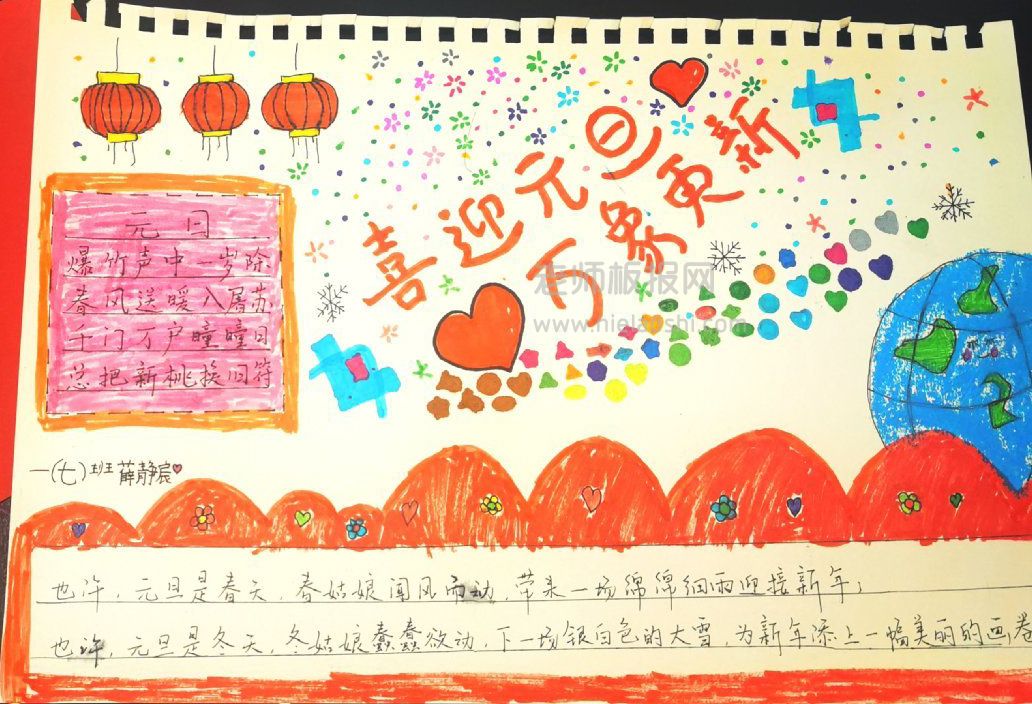 喜迎元旦
万象更新
元日
爆竹声中一岁除
春风送暖入屠苏
千门万户瞳瞳日
总把新桃换旧符
老师板报网
一(七)班薛静宸
也许，元旦是春天，春姑娘闻风而动，带来一场绵绵细雨迎接新年；
也许，元旦是冬天，冬姑娘蠢蠢欲动，下一场银白色的大雪，为新年添上一幅美丽的画卷